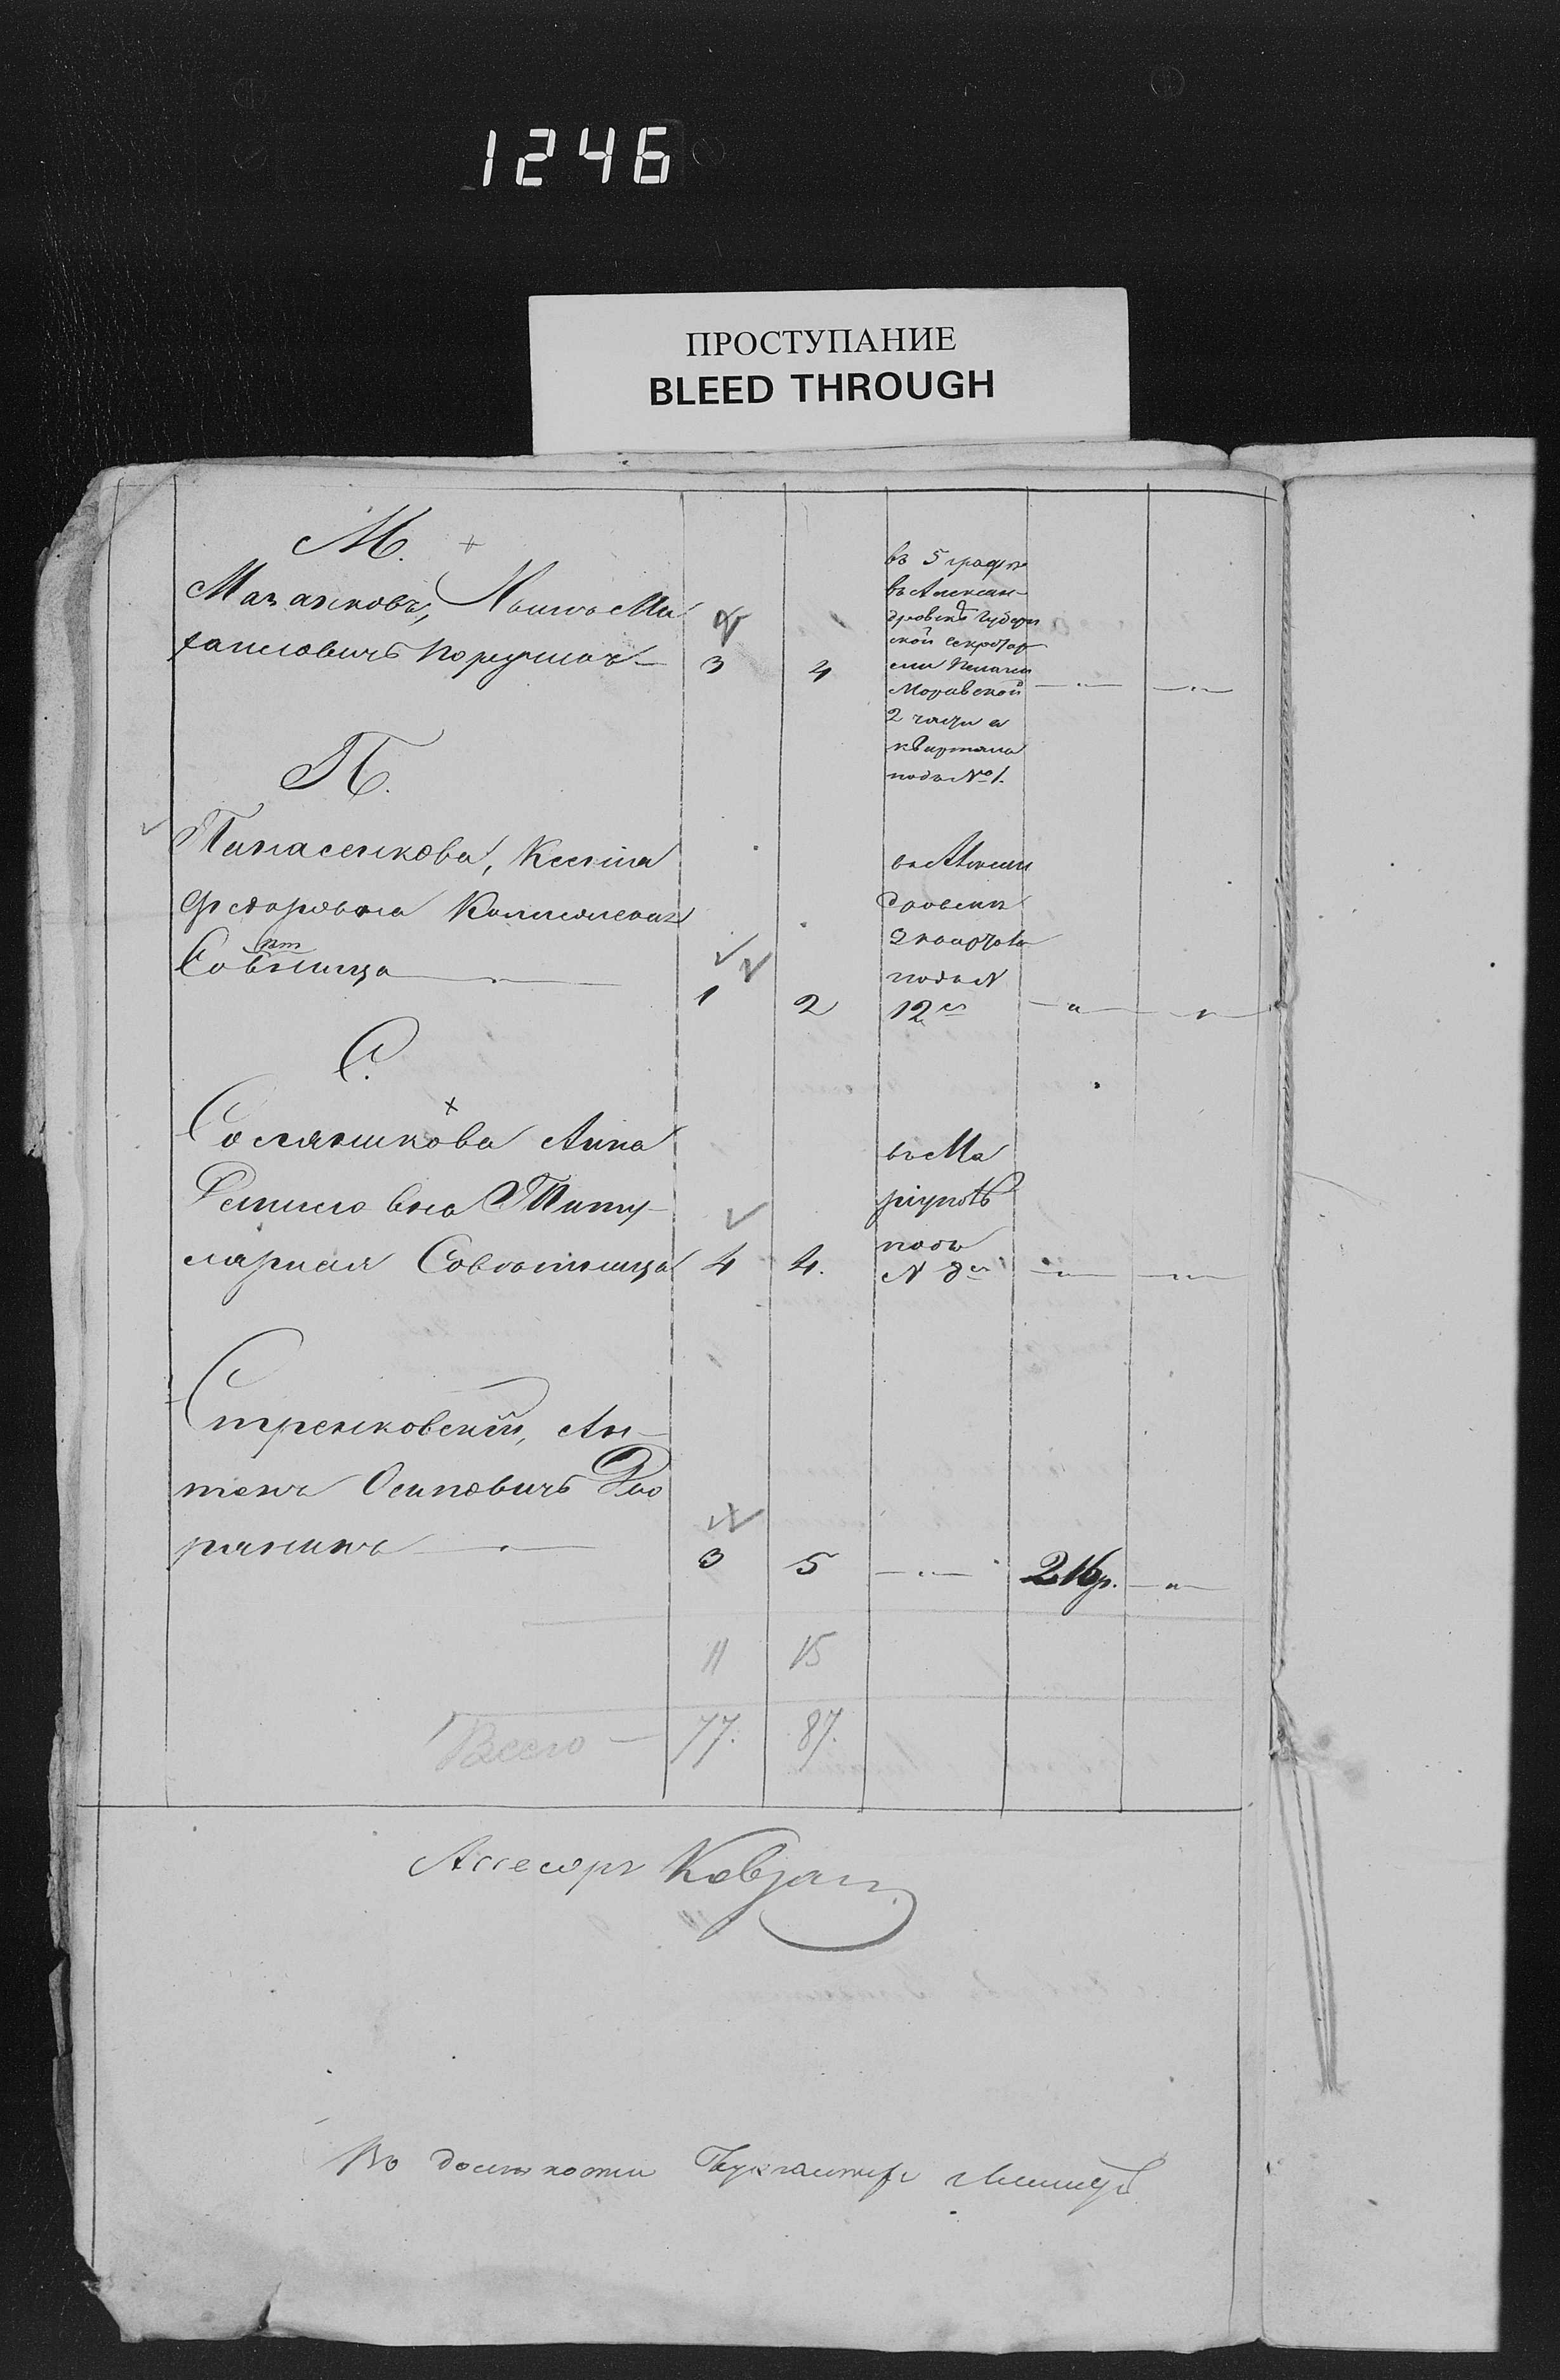 1246
ПРОСТУПАНИЕ
BLEED THROUGH
М.
Мазанковъ, Ми
хаиловичъ Поручикъ
3 4
въ 5 графѣ
въ Алексан-
дровскѣ Губерн
ской Секретар
Моравской
2 части
квартала
подъ № 1.
П.
Панасенкова, Ксенія
Федоровна Коллежская
Совѣтница
1 2
въ Алексан
дровскѣ
2 квартала
подъ N
12
С.
Соляникова Анна
Титу-
лярная Совѣтница 4 4.
въ Ма
ріуполѣ
подъ
N 8
Стренковскій, Ан-
тонъ Осиповичъ Дво
рянинъ
3 5 216р.
11 15
Всего — 77. 87.
Ассесоръ Ковзан
Во должности Бухгалтера